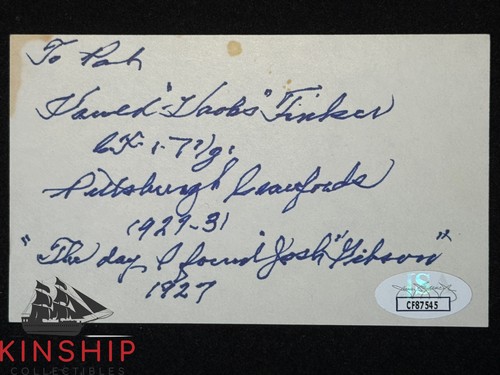 To Pat
Harold "Hooks" Tinker
Pittsburgh Crawfords
1929-31
"The day I found "Josh" Gibson"
1927
CF87545
KINSHIP
COLLECTIBLES